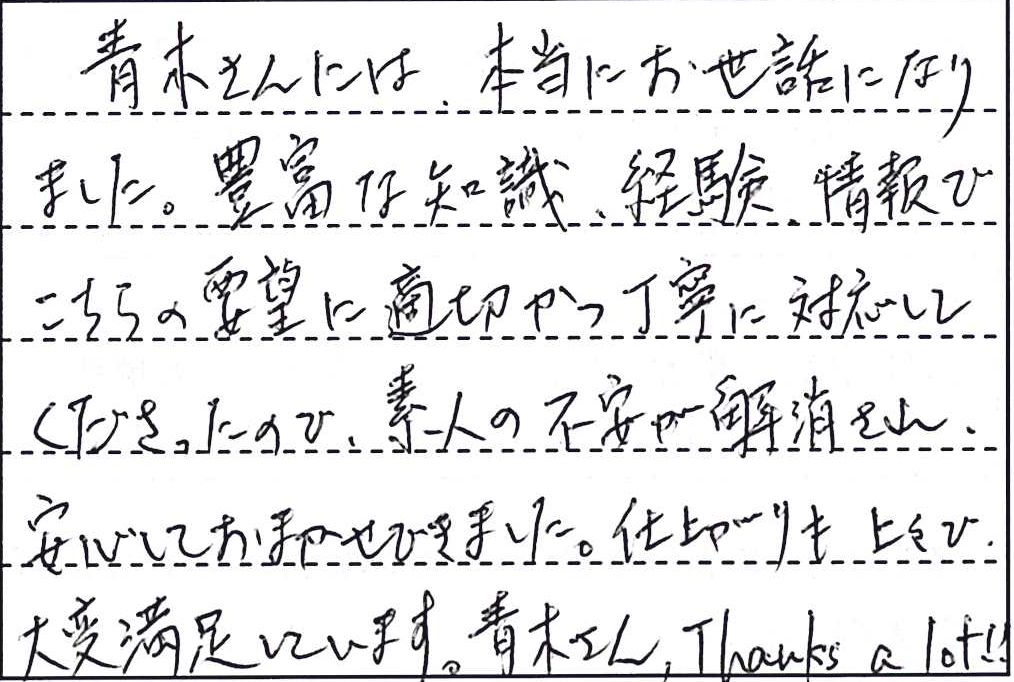 青木さんには、本当にお世話になり
ました。豊富な知識、経験、情報で
こちらの要望に適切かつ丁寧に対応して
くださったので、素人の不安が解消され、
安心しておまかせできました。仕上がりも上々で、
大変満足しています。青木さん, Thanks a lot!!